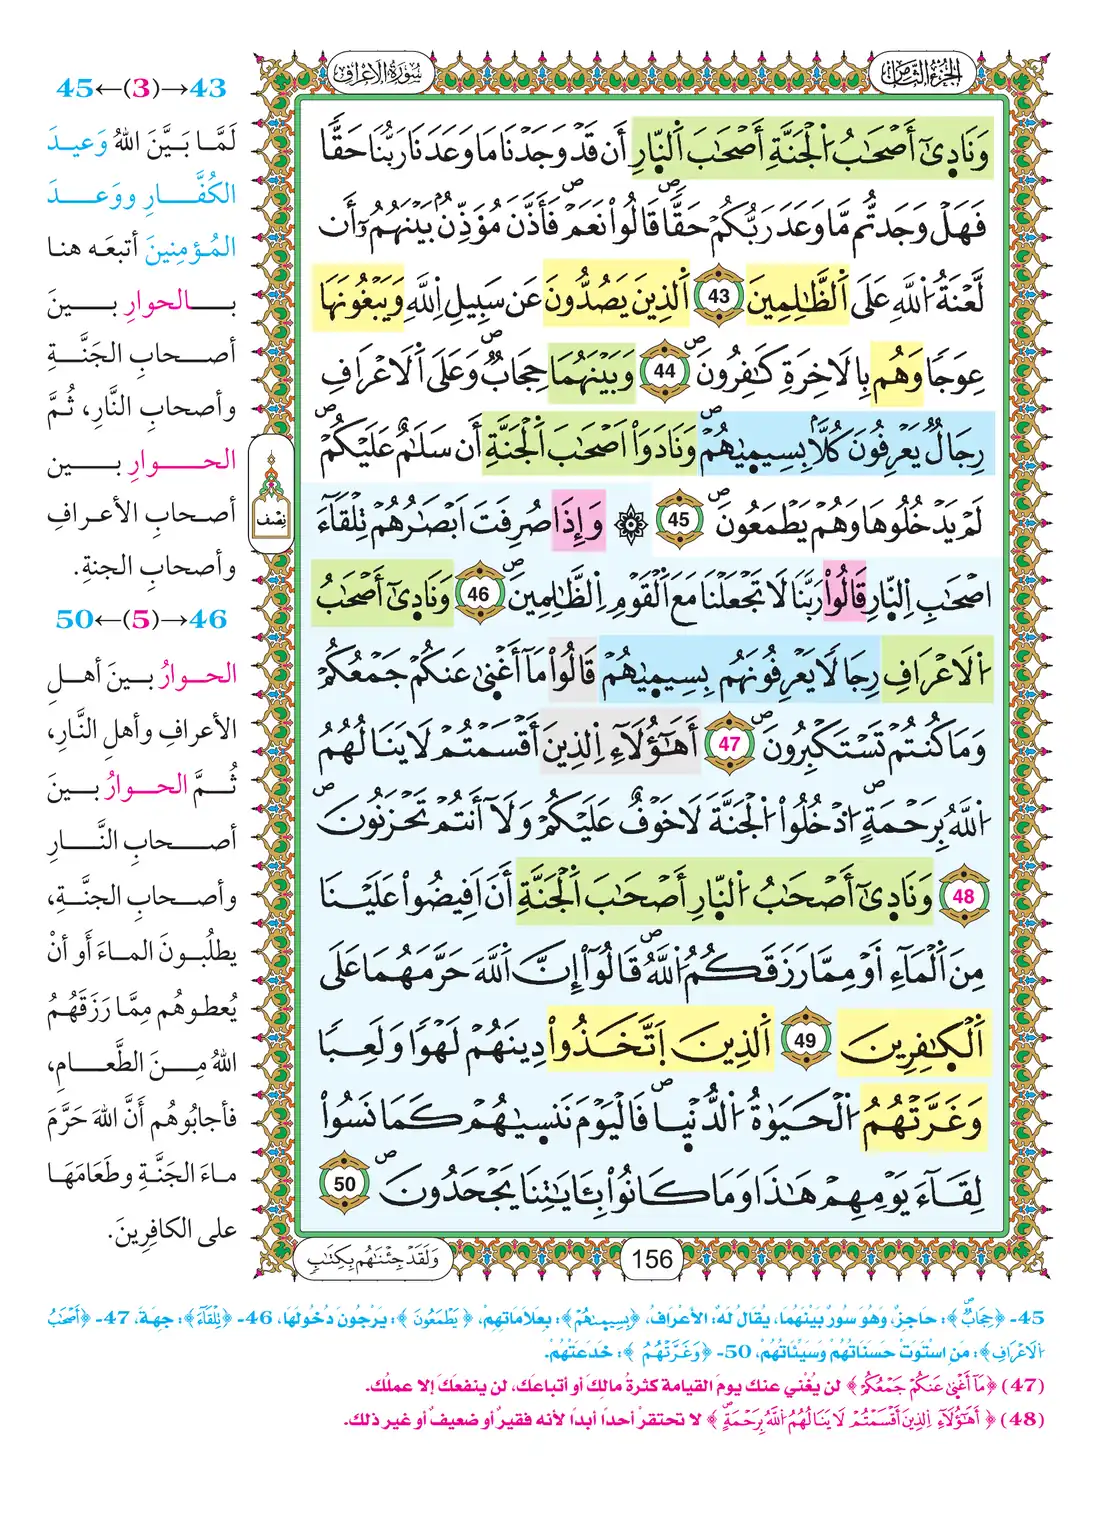 الجزء الثامن
سورة الأعراف
وَنَادِىٰٓ أَصْحَٰبُ اُ۬لْجَنَّةِ أَصْحَٰبَ اَ۬لنّ۪ارِ أَن قَدْ وَجَدْنَا مَا وَعَدَنَا رَبُّنَا حَقّاٗ
فَهَلْ وَجَدتُّم مَّا وَعَدَ رَبُّكُمْ حَقّاٗۖ قَالُواْ نَعَمْۖ فَأَذَّنَ مُؤَذِّنُۢ بَيْنَهُمُۥٓ أَن
لَّعْنَةُ اُ۬للَّهِ عَلَى اَ۬لظَّٰلِمِينَ 43 اَ۬لذِينَ يَصُدُّونَ عَن سَبِيلِ اِ۬للَّهِ وَيَبْغُونَهَا
عِوَجاٗ وَهُم بِالَاخِرَةِ كَٰفِرُونَۖ 44 وَبَيْنَهُمَا حِجَابٞۖ وَعَلَى اَ۬لَاعْرَافِ
رِجَالٞ يَعْرِفُونَ كُلّاَۢ بِسِيم۪يٰهُمْۖ وَنَادَوَاْ اَصْحَٰبَ اَ۬لْجَنَّةِ أَن سَلَٰمٌ عَلَيْكُمْۖ
لَمْ يَدْخُلُوهَا وَهُمْ يَطْمَعُونَۖ 45 ۞ وَإِذَا صُرِفَتَ اَبْصَٰرُهُمْ تِلْقَآءَ
اَصْحَٰبِ اِ۬لنّ۪ارِ قَالُواْ رَبَّنَا لَا تَجْعَلْنَا مَعَ اَ۬لْقَوْمِ اِ۬لظَّٰلِمِينَۖ 46 وَنَادِىٰٓ أَصْحَٰبُ
اُ۬لَاعْرَافِ رِجَالاٗ يَعْرِفُونَهُم بِسِيم۪يٰهُمْ قَالُواْ مَآ أَغْن۪يٰ عَنكُمْ جَمْعُكُمْ
وَمَا كُنتُمْ تَسْتَكْبِرُونَۖ 47 أَهَٰٓؤُلَآءِ اِ۬لذِينَ أَقْسَمْتُمْ لَا يَنَالُهُمُ
اُ۬للَّهُ بِرَحْمَةٍۖ اُ۟دْخُلُواْ اُ۬لْجَنَّةَ لَا خَوْفٌ عَلَيْكُمْ وَلَآ أَنتُمْ تَحْزَنُونَۖ
48 وَنَادِىٰٓ أَصْحَٰبُ اُ۬لنّ۪ارِ أَصْحَٰبَ اَ۬لْجَنَّةِ أَنَ اَفِيضُواْ عَلَيْنَا
مِنَ اَ۬لْمَآءِ أَوْ مِمَّا رَزَقَكُمُ اُ۬للَّهُۖ قَالُوٓاْ إِنَّ اَ۬للَّهَ حَرَّمَهُمَا عَلَى
اَ۬لْكٰ۪فِرِينَ 49 اَ۬لذِينَ اَ۪تَّخَذُواْ دِينَهُمْ لَهْواٗ وَلَعِباٗ
وَغَرَّتْهُمُ اُ۬لْحَيَوٰةُ اُ۬لدُّنْي۪اۖ فَالْيَوْمَ نَنس۪يٰهُمْ كَمَا نَسُواْ
لِقَآءَ يَوْمِهِمْ هَٰذَا وَمَا كَانُواْ بِـَٔايَٰتِنَا يَجْحَدُونَۖ 50
نِصْف
وَلَقَدْ جِئْنَٰهُم بِكِتَٰبٖ
156
43→(3)←45
لَمَّا بَيَّنَ اللهُ وَعيدَ
الكُفَّارِ ووَعدَ
المُؤمِنينَ أتبعَه هنا
بالحوارِ بينَ
أصحابِ الجَنَّةِ
وأصحابِ النَّارِ، ثُمَّ
الحوارِ بين
أصحابِ الأعرافِ
وأصحابِ الجنةِ.
46→(5)←50
الحوارُ بينَ أهلِ
الأعرافِ وأهلِ النَّارِ،
ثُمَّ الحوارُ بينَ
أصحابِ النَّارِ
وأصحابِ الجنَّةِ،
يطلُبونَ الماءَ أو أنْ
يُعطوهُم مِمَّا رَزَقَهُمُ
اللهُ مِنَ الطَّعامِ،
فأجابُوهُم أنَّ اللهَ حَرَّمَ
ماءَ الجَنَّةِ وطَعَامَهَا
على الكافِرِينَ.
45- ﴿حِجَابٞۖ﴾: حاجزٌ، وَهُوَ سُورٌ بَيْنَهُمَا، يُقَالُ لَهُ: الأَعْرَافُ، ﴿بِسِيم۪يٰهُمْ﴾: بِعَلاَمَاتِهِمْ، ﴿يَطْمَعُونَ﴾: يَرْجُونَ دُخُولَهَا، 46- ﴿تِلْقَآءَ﴾: جِهَةَ، 47- ﴿أَصْحَٰبُ
اُ۬لَاعْرَافِ﴾: مَنِ اسْتَوَتْ حَسَنَاتُهُمْ وَسَيِّئَاتُهُمْ، 50- ﴿وَغَرَّتْهُمُ﴾: خَدَعَتْهُمْ.
(47) ﴿مَآ أَغْن۪يٰ عَنكُمْ جَمْعُكُمْ﴾ لن يُغْني عنك يومَ القيامة كثرةُ مالكَ أو أتباعكَ، لن ينفعكَ إلا عملُك.
(48) ﴿أَهَٰٓؤُلَآءِ اِ۬لذِينَ أَقْسَمْتُمْ لَا يَنَالُهُمُ اُ۬للَّهُ بِرَحْمَةٍۖ﴾ لا تحتقرْ أحداً أبداً لأنه فقيرٌ أو ضعيفٌ أو غير ذلك.